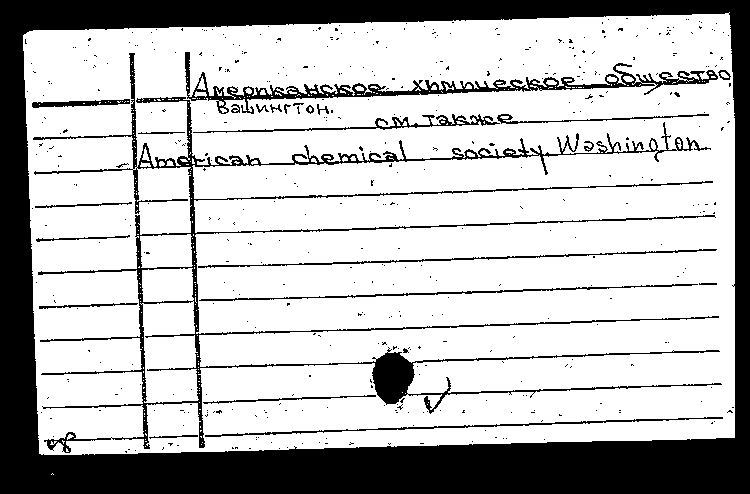 Американское химическое общество
Вашингтон.
см. также
American chemical society. Washington